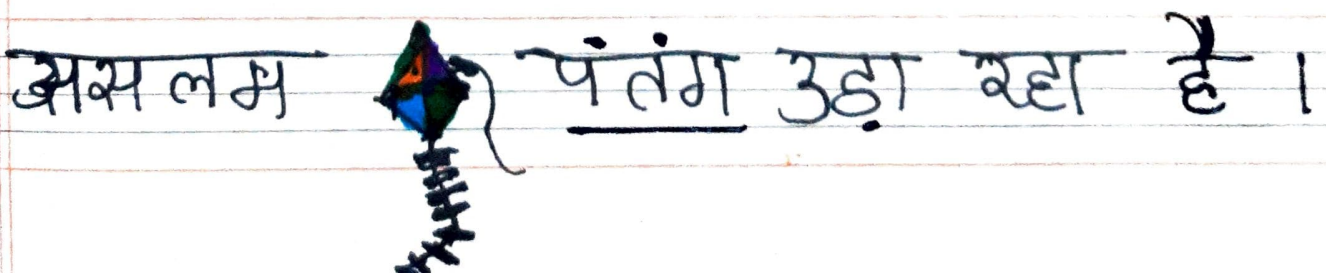 असलम पंतंग उड़ा रहा है।